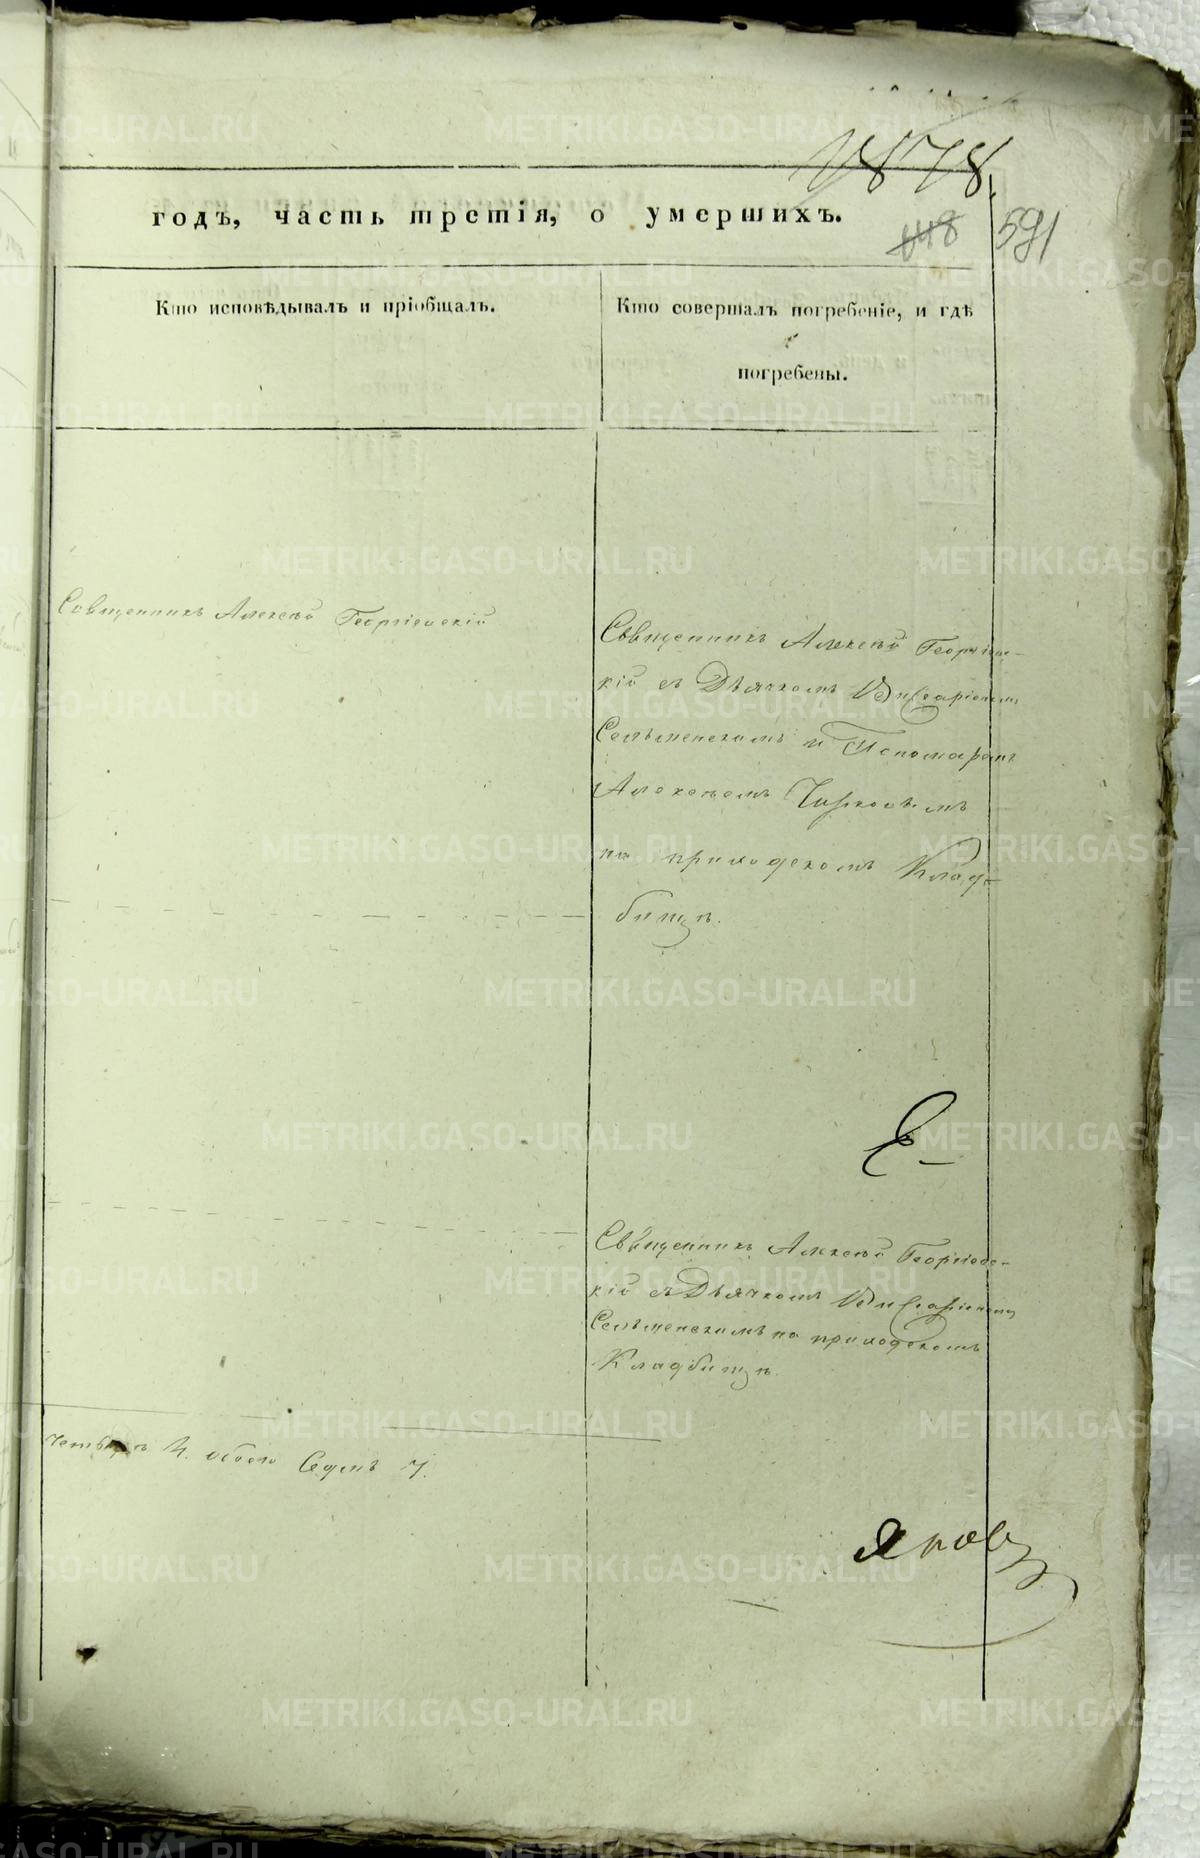 1878.
годъ, часть третія, о умершихъ.
648 591
Кто исповѣдывалъ и пріобщалъ.
Кто совершалъ погребеніе, и гдѣ
погребены.
Священникъ Алексѣй Георгіевскій
Священникъ Алексѣй Георгіев-
кій съ Дьячкомъ Виссаріономъ
и Пономаремъ
Алексѣемъ
на приходскомъКлад-
бищѣ.
Священникъ Алексѣй Георгіевс-
кій съ Дьячкомъ Виссаріономъ
на приходскомъ
Кладбищѣ.
четыре 4. обоего Седмь 7.
METRIKI.GASO-URAL.RU